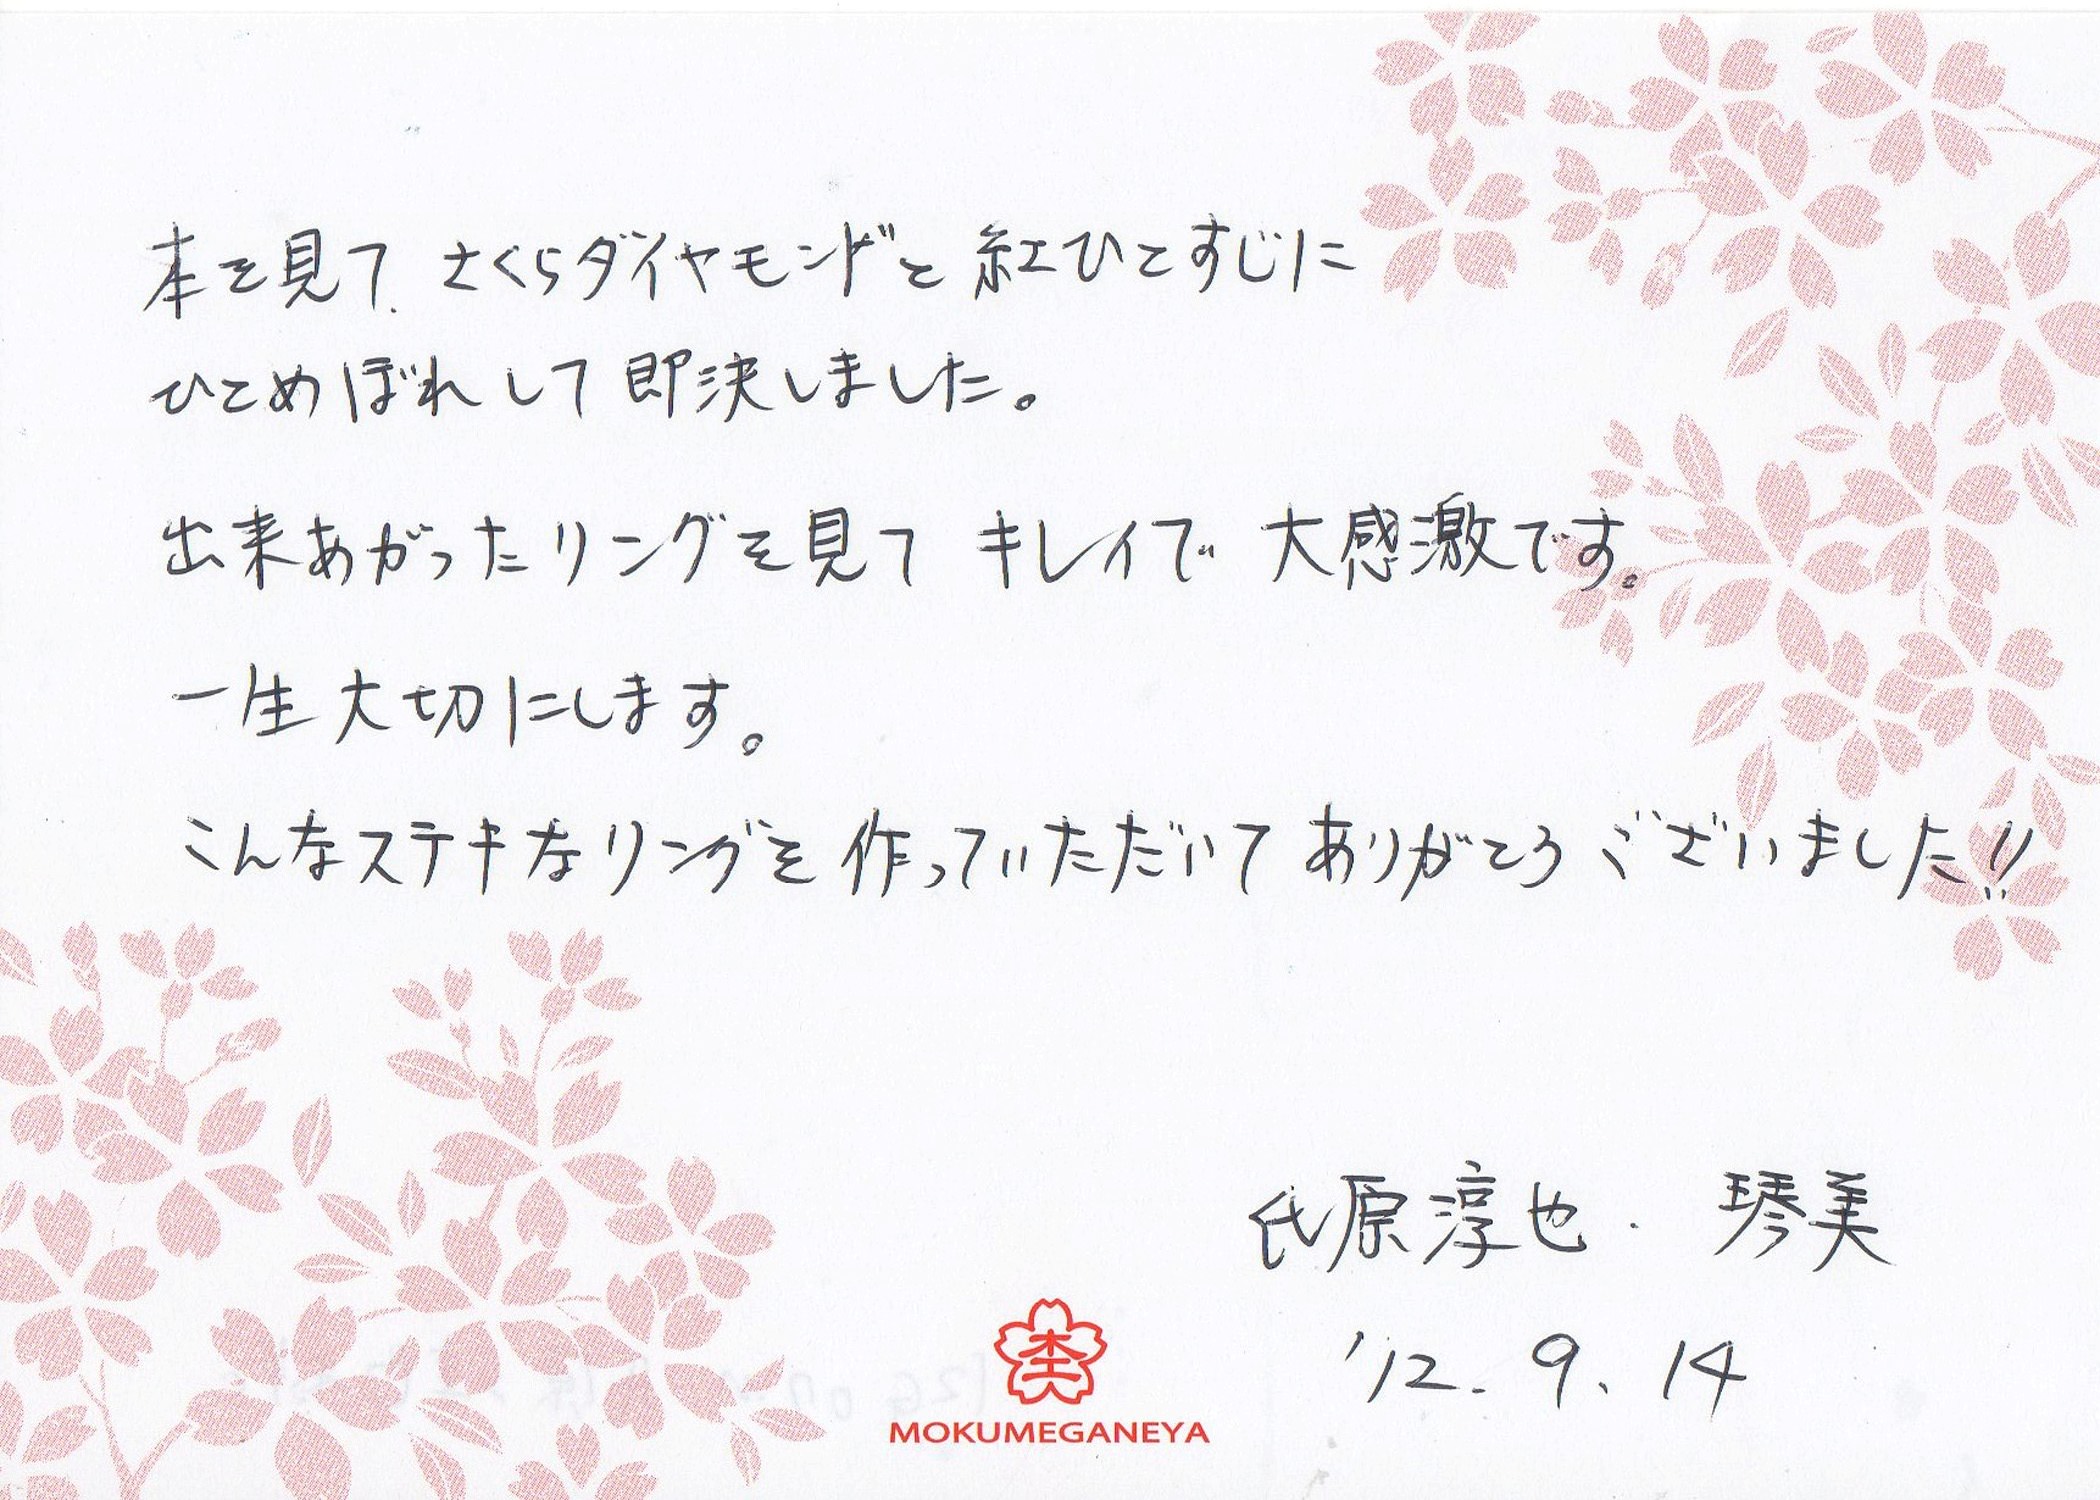 本を見て、さくらダイヤモンドと紅ひとすじに
ひとめぼれして即決しました。
出来あがったリングを見て キレイで 大感激です。
一生大切にします。
こんなステキなリングを作っていただいて ありがとうございました!!
氏原淳也・琴美
'12.9.14
杢
MOKUMEGANEYA